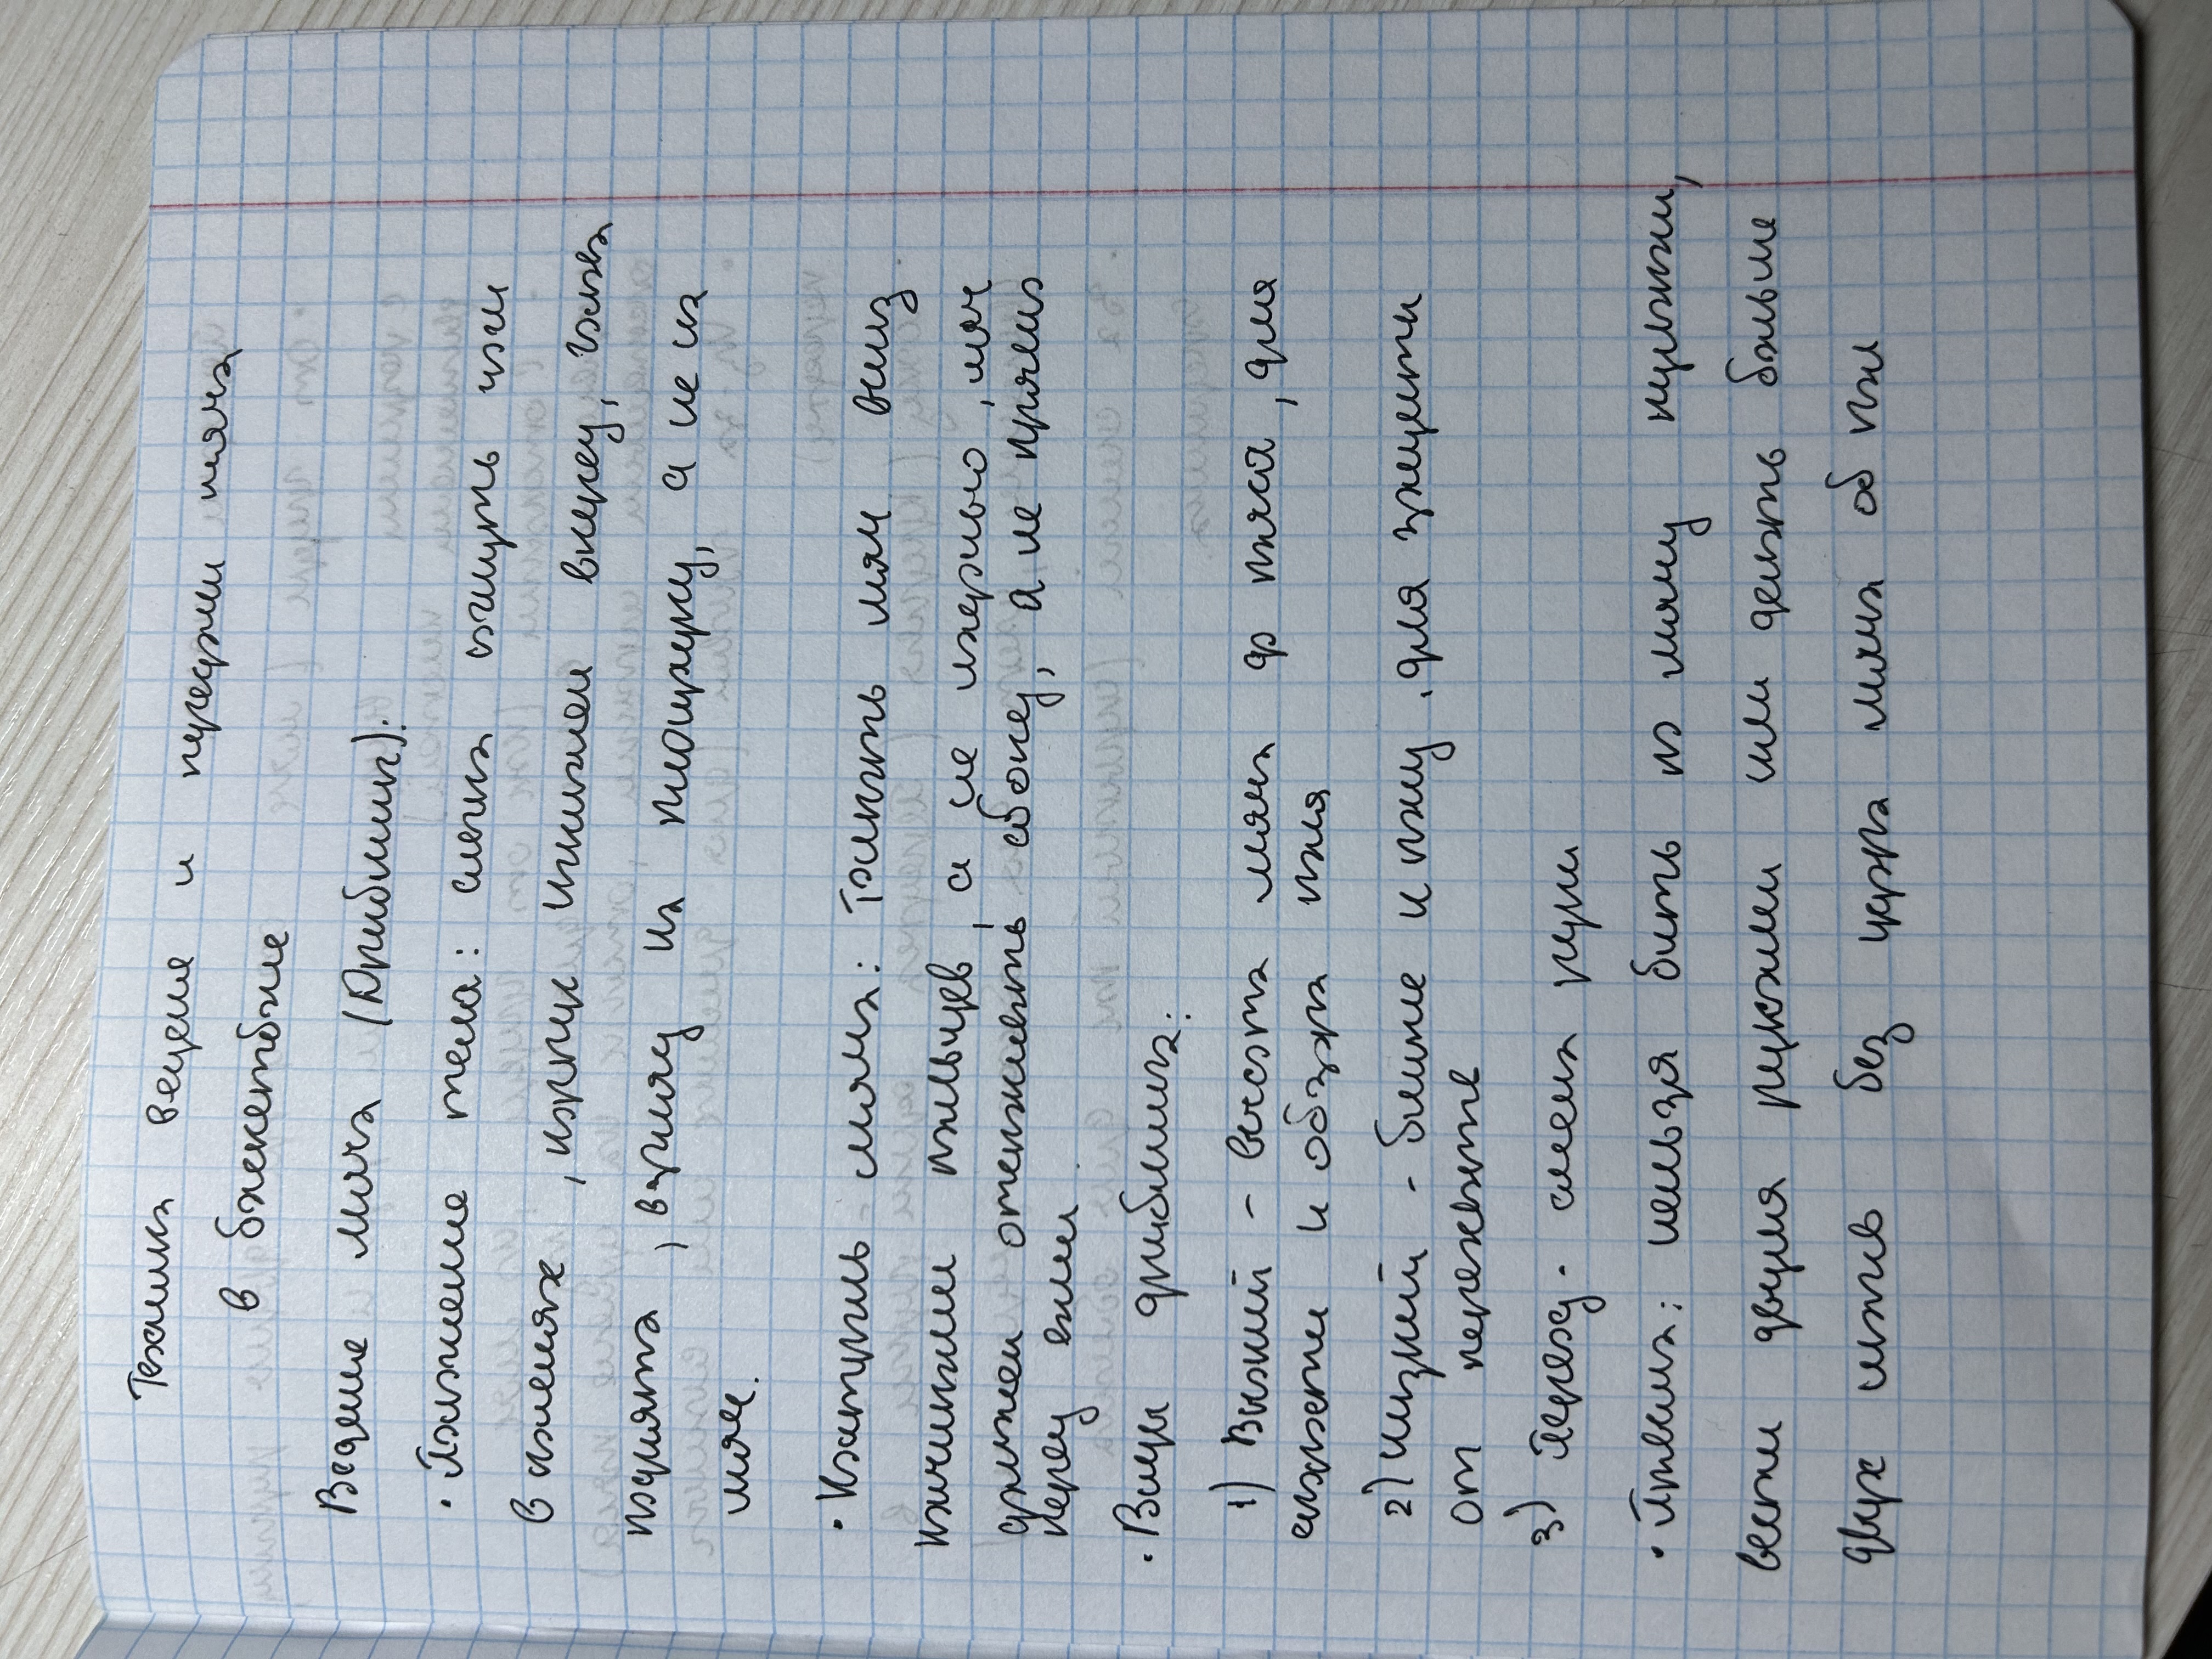 Техника ведения и передачи мяча
в баскетболе
Ведение мяча (Дрибблинг).
• Положение тела: слегка согнуть ноги
в коленях, корпус наклонен вперед, голова
поднята, взгляд на площадку, а не на
мяч.
• Контроль мяча: Толкать мяч вниз
кончиками пальцев, а не ладонью, мяч
должен отскакивать сбоку, а не прямо
перед вами.
• Виды дриблинга:
1) Высокий - высота мяча до пояса, для
скорости и обзора поля
2) низкий - ближе к полу, для защиты
от перехвата
3) Перевод - смена руки
• Правила: нельзя бить по мячу кулаком,
вести двумя руками или делать больше
двух шагов без удара мяча об пол